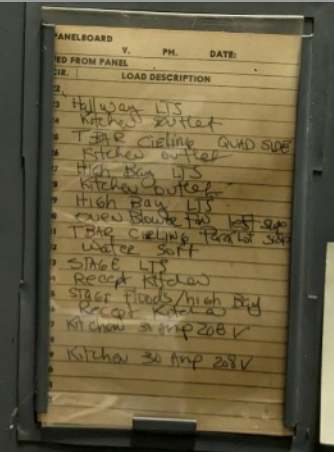 PANELBOARD
V. PH. DATE:
ED FROM PANEL
CIR. LOAD DESCRIPTION
Hallway LTS
Kitchen outlet
TBAR CIELING QUAD SIDE
Kitchen outlet
High Bay LTS
Kitchen outlet
HIGH BAY LTS
oven Blower fan left side
TBAR CIELING
Water Soft
STAGE LTS
Recept Kitchen
STAGE Floods/high Bay
Recept Kitchen
Kitchen 30 Amp 208 V
Kitchen 30 Amp 208 V